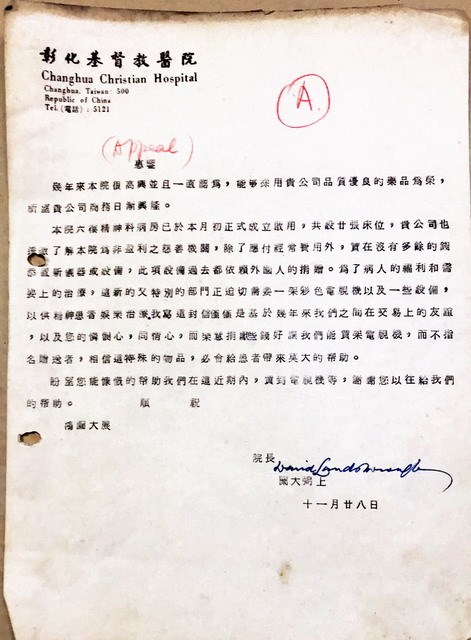 彰化基督教醫院
Changhua Christian Hospital
Changhua, Taiwan 500
Republic of China
Tel. (電話) : 5121
A
(Appeal)
惠鑒
幾年來本院很高興並且一直認爲，能夠採用貴公司品質優良的藥品爲榮，
貴公司商務日漸興隆。
本院六樓精神科病房已於本月初正式成立啟用，共設廿張床位，貴公司也
了解本院爲非盈利之慈善機關，除了應付經常費用外，實在沒有多餘的錢
添或新儀器或設備，此項設備過去都依賴外國人的捐贈。爲了病人的福利和需
要上的治療，這新的又特別的部門正迫切需要一架彩色電視機以及一些設備，
以供精神患者娛樂治療我寫這封信僅僅是基於幾年來我們之間在交易上的友誼
，以及您的慷慨心，同情心，而樂意捐獻些錢好讓我們能買架電視機，而不指
名贈送者，相信這特殊的物品，必會給患者帶來莫大的幫助。
盼望您能慷慨的幫助我們在這近期內，買到電視機等，謝謝您以往給我們
的幫助。 順 祝
鴻圖大展
院長 David Landsborough
蘭大弼上
十一月廿八日